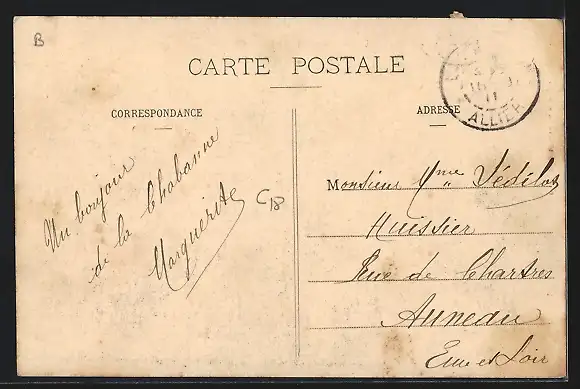 B
CARTE POSTALE
CORRESPONDANCE
Un bonjour
de la Chabanne
Marguerite
C18
ADRESSE
ALLIER
Monsieur Mme Sédillot
Huissier
Rue de Chartres
Auneau
Eure et Loir